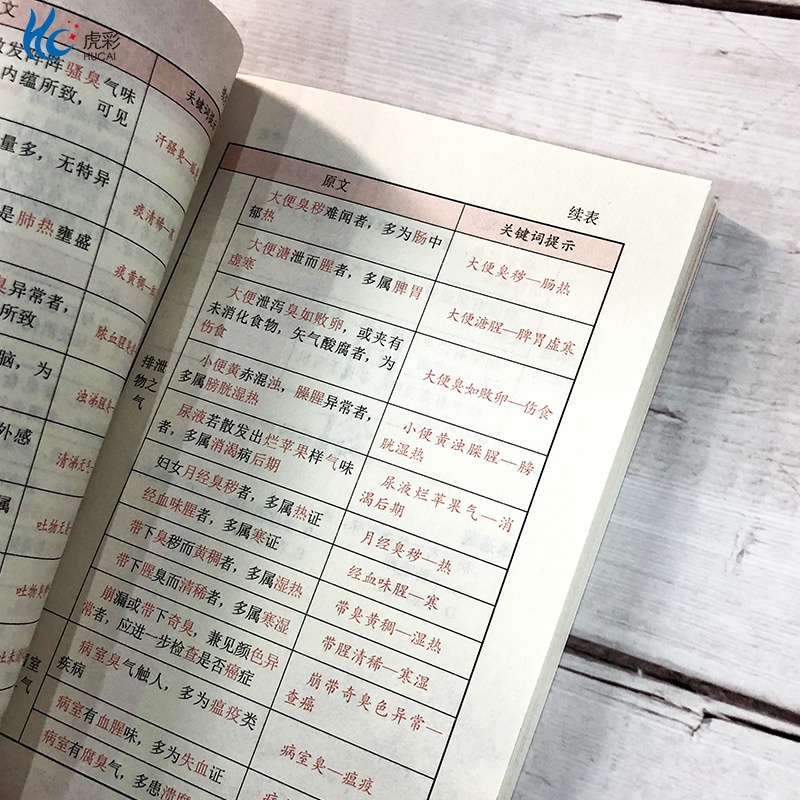 虎彩
HUCAI
文
散发阵阵骚臭气味
内蕴所致，可见
量多，无特异
是肺热壅盛
臭异常者，
所致
脑，为
外感
属
室
气
关键词提示
汗骚臭—狐
痰清稀—寒
痰黄稠—
脓血腥臭
浊涕腥
清涕无
吐物无
吐物臭
吐未
续表
原文
关键词提示
排泄
物之
气
大便臭秽难闻者，多为肠中
郁热
大便臭秽—肠热
大便溏泄而腥者，多属脾胃
虚寒
大便溏腥—脾胃虚寒
大便泄泻臭如败卵，或夹有
未消化食物，矢气酸腐者，为
伤食
大便臭如败卵—伤食
小便黄赤混浊，臊腥异常者，
多属膀胱湿热
小便黄浊臊腥—膀
胱湿热
尿液若散发出烂苹果样气味
者，多属消渴病后期
尿液烂苹果气—消
渴后期
妇女月经臭秽者，多属热证
月经臭秽—热
经血味腥者，多属寒证
经血味腥—寒
带下臭秽而黄稠者，多属湿热
带臭黄稠—湿热
带下腥臭而清稀者，多属寒湿
带腥清稀—寒湿
崩漏或带下奇臭，兼见颜色异
常者，应进一步检查是否癌症
崩带奇臭色异常—
查癌
病室臭气触人，多为瘟疫类
疾病
病室臭—瘟疫
病室有血腥味，多为失血证
病室有腐臭气，多患溃腐